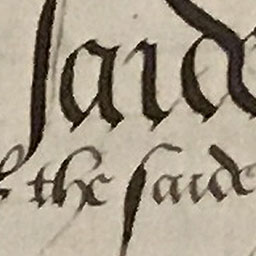 saide
the saide